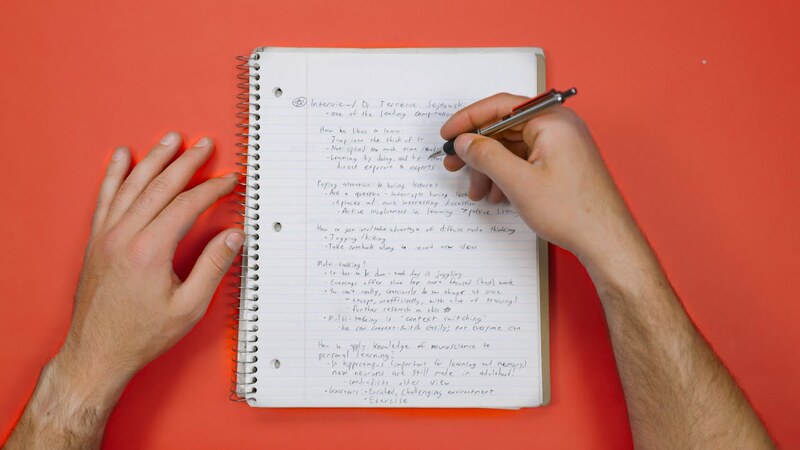 Interview/ Dr. Terrence Sejnowski
- one of the leading computation
How he likes to learn
- Jump into the thick of it
- Not spend too much time
- Learning by doing, and by
direct exposure to experts
Paying attention to boring lecture?
- Ask a question - interrupts boring
replaces w/ more interesting discussion
- Active involvement in learning > passive
How to get into/take advantage of diffuse mode thinking
- Jogging/hiking
- Take notebook along to record new ideas
Multi-tasking?
- to be done - each day is juggling
- Evenings offer time for more focused work
- You can't really, consciously do two things at once
- except, inefficiently, with a lot of training!
further research on this
- Multi-tasking is "context switching"
- he can context-switch easily; not everyone can
How to apply knowledge of neuroscience to
personal learning?
- In hippocampus (important for learning and memory)
new neurons are still made in adulthood!
- contradicts older view
- Enriched, challenging environment
- Exercise